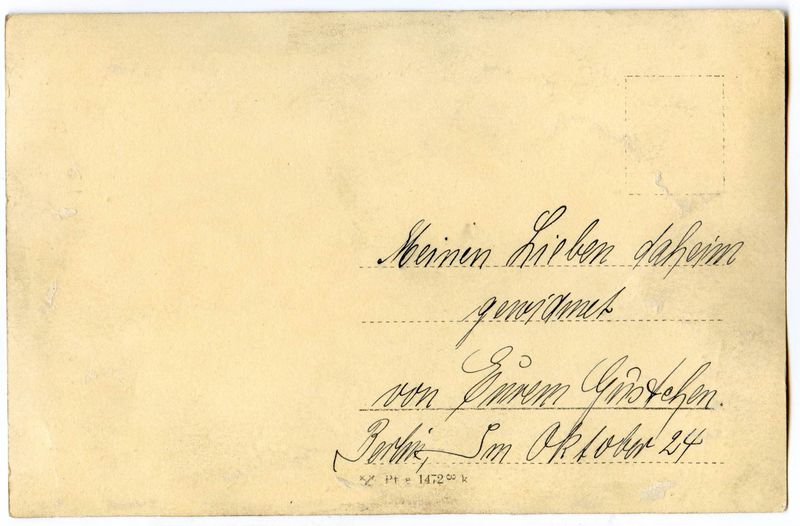 Meinen Lieben daheim
gewidmet
von Eurem Gustchen.
Berlin, Im Oktober 24
Pt e 1472 k